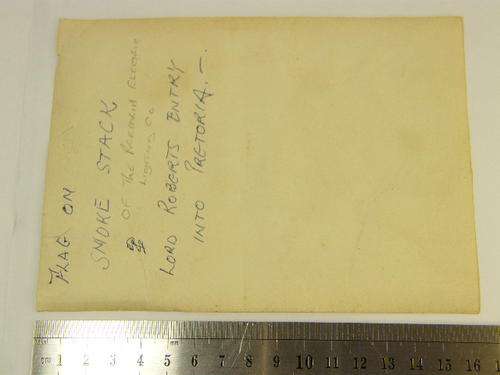 FLAG ON
SMOKE STACK
OF THE PRETORIA ELECTRIC
LIGHTING CO
LORD ROBERTS ENTRY
INTO PRETORIA. —
cm 1 2 3 4 5 mm 6 7 8 9 10 11 12 13 14 15 16